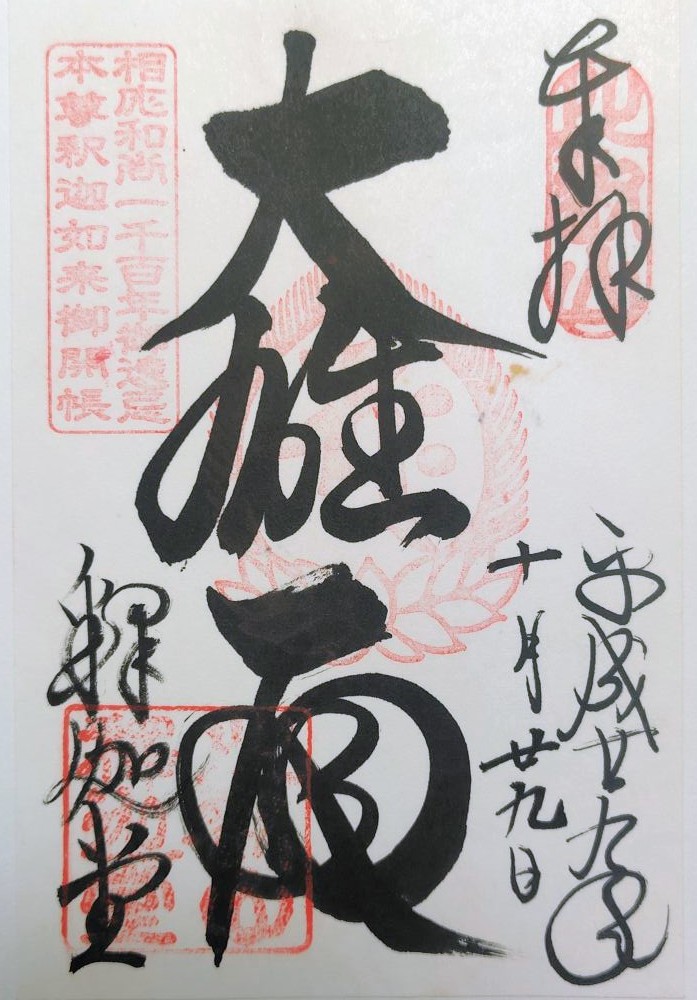 奉拝
平成廿九年
十月廿九日
大雄殿
釋迦堂
相応和尚一千百年御遠忌
本尊釈迦如来御開帳